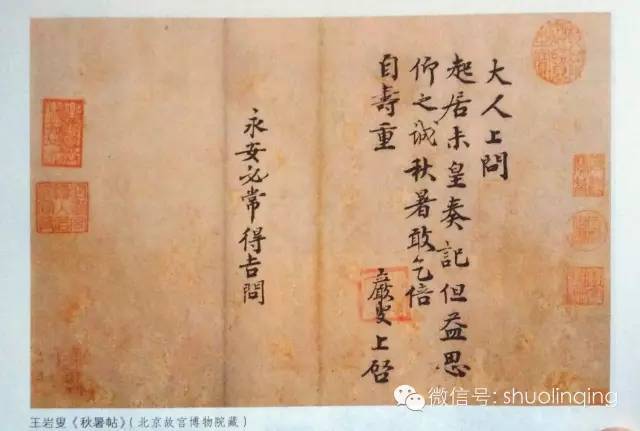 大人上問
起居未皇奏記但益思
仰之誠秋暑敢乞倍
自壽重
巖叟上啓
永安必常得吉問
微信号: shuolinqing
王岩叟《秋暑帖》(北京故宫博物院藏)